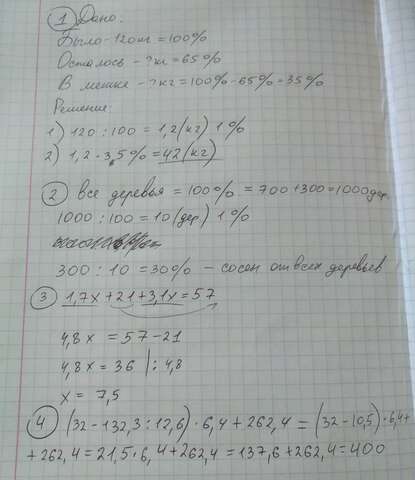 1 Дано:
Было - 120 кг = 100%
Осталось - ? кг = 65%
В мешке - ? кг = 100% - 65% = 35%
Решение:
1) 120 : 100 = 1,2 (кг) 1%
2) 1,2 · 3,5% = 42 (кг)
2 Все деревья = 100% = 700 + 300 = 1000 дер.
1000 : 100 = 10 (дер) 1%
300 : 10 = 30% - сосен от всех деревьев
3 1,7x + 21 + 3,1x = 57
4,8x = 57 - 21
4,8x = 36 | : 4,8
x = 7,5
4 (32 - 132,3 : 12,6) · 6,4 + 262,4 = (32 - 10,5) · 6,4 +
+ 262,4 = 21,5 · 6,4 + 262,4 = 137,6 + 262,4 = 400